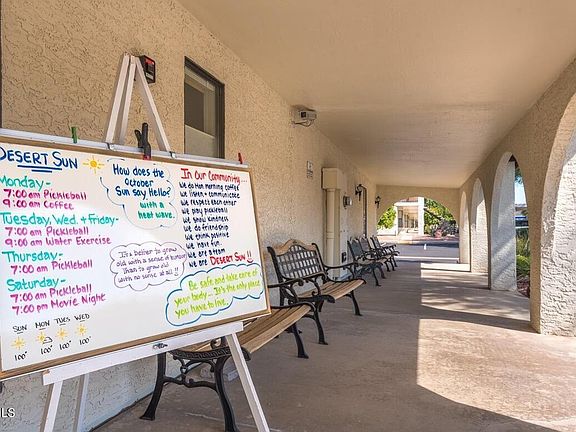 DESERT SUN
Monday-
7:00 am Pickleball
9:00 am Coffee
Tuesday, Wed. & Friday-
7:00 am Pickleball
9:00 am Water Exercise
Thursday-
7:00 am Pickleball
Saturday-
7:00 am Pickleball
7:00 pm Movie Night
SUN MON TUES WED
100° 100° 100° 100°
How does the
October
Sun say Hello?
with a
heat wave.
It's Better to grow
old with a sense of humor
Than to grow old
with no sense at all!!
In Our Community...
We do Mon morning coffee
We listen & communicate
We respect each other
We play pickleball
We show kindness
We do friendship
We think positive
We have fun.
We are a team
We are DESERT SUN!!
Be safe and take care of
your body- It's the only place
you have to live.
LS